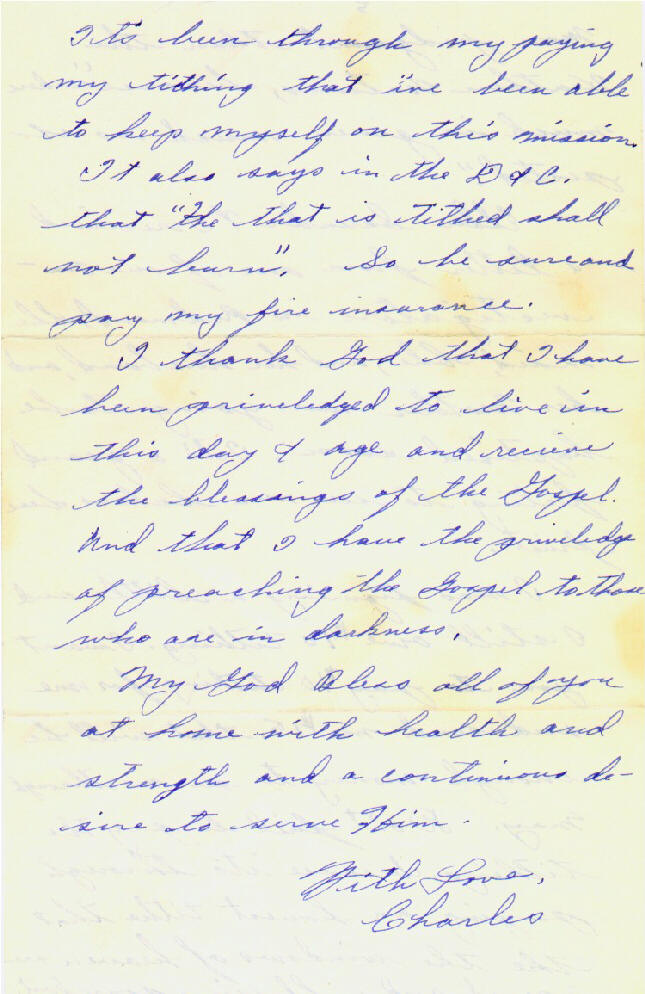 Its been through my paying
my tithing that ive been able
to keep myself on this mission.
It also says in the D & C.
that "He that is tithed shall
not burn". So be sure and
pay my fire insurance.
I thank God that I have
been priveledged to live in
this day & age and recieve
the blessings of the Gospel.
And that I have the priveledge
of preaching the Gospel to those
who are in darkness.
My God Bless all of you
at home with health and
strength and a continuous de-
sire to serve Him.
With Love,
Charles